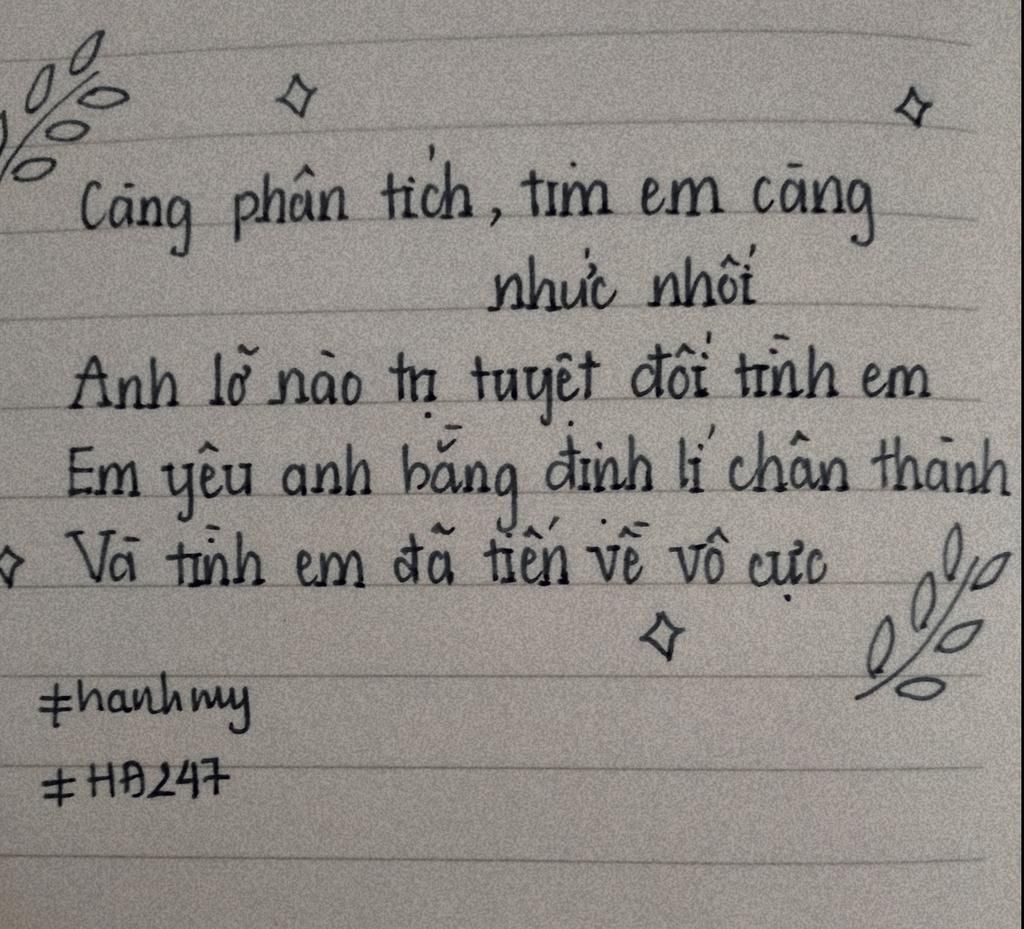 Càng phân tích, tim em càng
nhức nhối
Anh lỡ nào trị tuyệt đối tình em
Em yêu anh bằng định lí chân thành
Và tình em đã tiến về vô cực
#hanhmy
#HĐ247